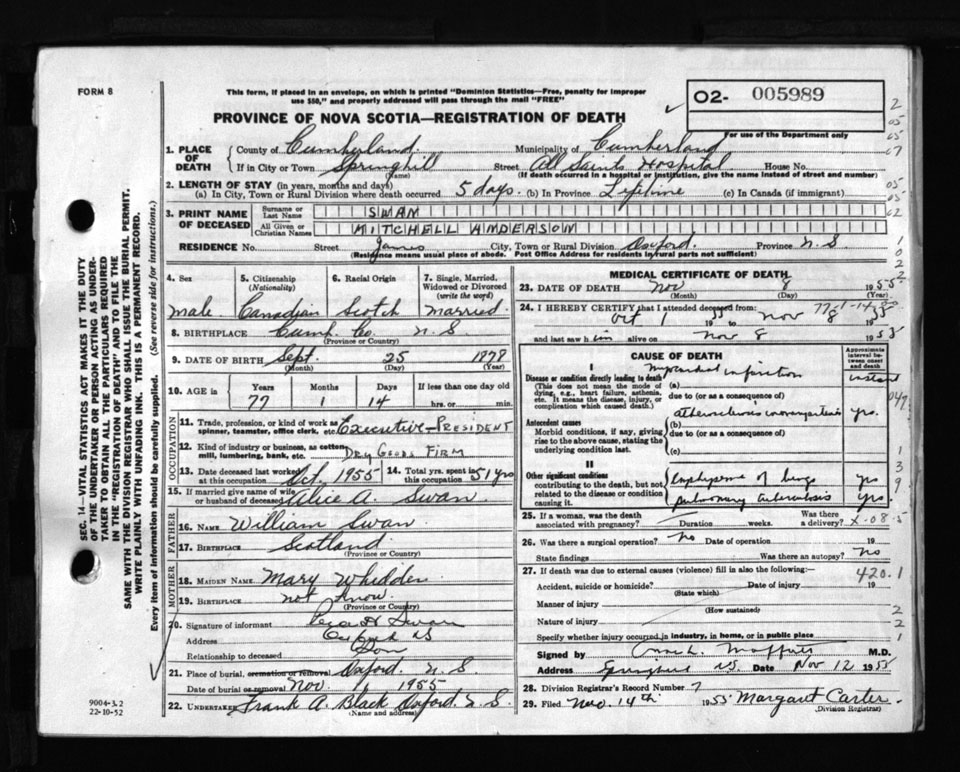 FORM 8
This form, if placed in an envelope, on which is printed "Dominion Statistics—Free, penalty for improper
use $50," and properly addressed will pass through the mail "FREE"
PROVINCE OF NOVA SCOTIA—REGISTRATION OF DEATH
02- 005989
For use of the Department only
SEC. 14—VITAL STATISTICS ACT MAKES IT THE DUTY
OF THE UNDERTAKER OR PERSON ACTING AS UNDER-
TAKER TO OBTAIN ALL THE PARTICULARS REQUIRED
IN THE "REGISTRATION OF DEATH" AND TO FILE THE
SAME WITH THE DIVISION REGISTRAR WHO SHALL ISSUE THE BURIAL PERMIT.
WRITE PLAINLY WITH UNFADING INK. THIS IS A PERMANENT RECORD.
Every item of information should be carefully supplied. (See reverse side for instructions.)
1. PLACE OF DEATH
County of Cumberland Municipality of Cumberland
If in City or Town Springhill Street All Saints Hospital House No.
(Name) (If death occurred in hospital or institution, give the name instead of street and number)
2. LENGTH OF STAY (in years, months and days)
(a) In City, Town or Rural Division where death occurred 5 days (b) In Province Lifetime (c) In Canada (if immigrant)
3. PRINT NAME OF DECEASED
Surname or Last Name SWAN
All Given or Christian Names MITCHELL ANDERSON
RESIDENCE No. Street James City, Town or Rural Division Oxford. Province N.S
(Residence means usual place of abode. Post Office Address for residents in rural parts not sufficient)
4. Sex male
5. Citizenship (Nationality) Canadian
6. Racial Origin Scotch
7. Single, Married, Widowed or Divorced (write the word) Married
8. BIRTHPLACE Cumb. Co. N.S
(Province or Country)
9. DATE OF BIRTH Sept. 25 1878
(Month) (Day) (Year)
10. AGE in Years 77 Months 1 Days 14 If less than one day old hrs. or min.
OCCUPATION
11. Trade, profession, or kind of work as spinner, teamster, office clerk, etc. EXECUTIVE—PRESIDENT
12. Kind of industry or business, as cotton mill, lumbering, bank, etc. DRY GOODS FIRM
13. Date deceased last worked at this occupation Oct. 1955
14. Total yrs. spent in this occupation 51 yrs
15. If married give name of wife or husband of deceased Alice A. Swan
FATHER
16. NAME William Swan
17. BIRTHPLACE Scotland
(Province or Country)
MOTHER
18. MAIDEN NAME Mary Whidden
19. BIRTHPLACE not know
(Province or Country)
20. Signature of informant Swan
Address Oxford NS
Relationship to deceased Son
21. Place of burial, cremation or removal Oxford. N.S
Date of burial or removal Nov. 1955
22. UNDERTAKER Frank A. Black Oxford. N.S.
(Name and address)
9004-3.2
22-10-52
MEDICAL CERTIFICATE OF DEATH
23. DATE OF DEATH Nov 8 1955
(Month) (Day) (Year)
24. I HEREBY CERTIFY that I attended deceased from:
Oct 1 1955 to Nov 8
and last saw him alive on Nov 8 1955
CAUSE OF DEATH
Approximate interval between onset and death
I
Disease or condition directly leading to death
(This does not mean the mode of dying, e.g., heart failure, asthenia, etc. It means the disease, injury, or complication which caused death.)
(a) myocardial infarction instant
due to (or as a consequence of)
Antecedent causes
Morbid conditions, if any, giving rise to the above cause, stating the underlying condition last.
(b) yrs.
due to (or as a consequence of)
(c)
II
Other significant conditions
contributing to the death, but not related to the disease or condition causing it.
Emphysema of lungs yrs
pulmonary tuberculosis yrs.
25. If a woman, was the death associated with pregnancy? Duration weeks. Was there a delivery? X-08.5
26. Was there a surgical operation? no Date of operation 19
State findings Was there an autopsy? no
27. If death was due to external causes (violence) fill in also the following:— 420.1
Accident, suicide or homicide? Date of injury 19
(State which)
Manner of injury
(How sustained)
Nature of injury
Specify whether injury occurred in industry, in home, or in public place
Signed by M.D.
Address Springhill N.S. Date Nov 12 1955
28. Division Registrar's Record Number 7
29. Filed Nov. 14th 1955 Margaret Carter
(Division Registrar)